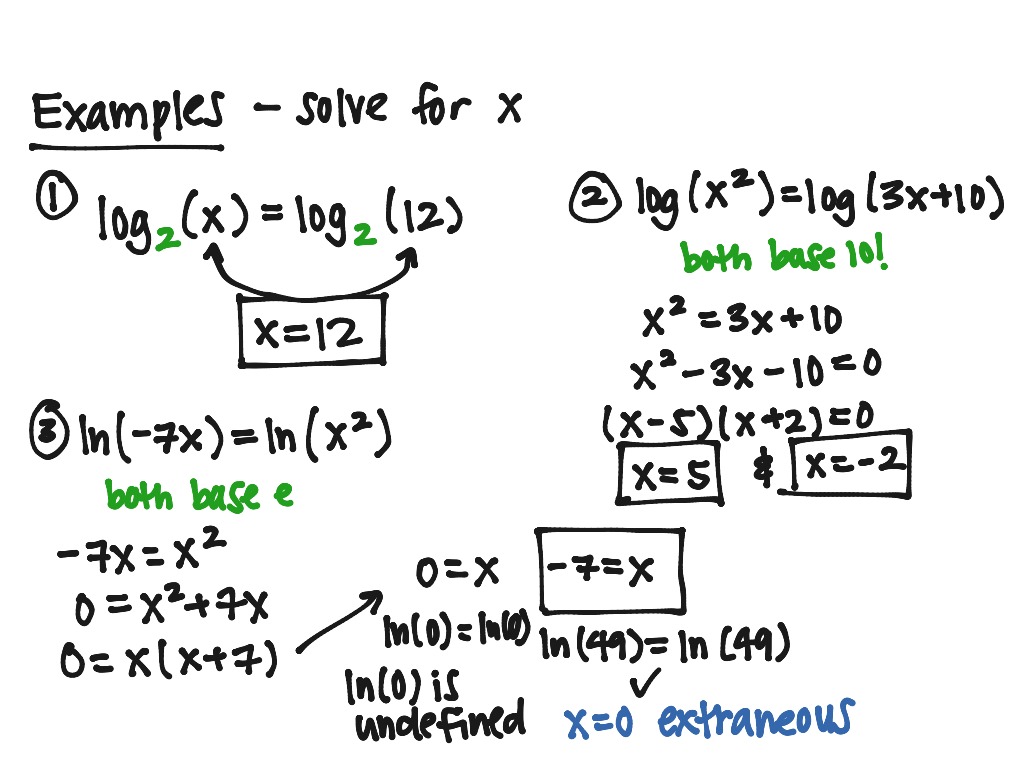 Examples - solve for x
① log₂(x) = log₂(12)
x=12
② log(x²)=log(3x+10)
both base 10!
x² =3x+10
x²-3x-10=0
(x-5)(x+2)=0
x=5 & x=-2
③ ln(-7x)=ln(x²)
both base e
-7x=x²
0=x²+7x
0=x(x+7)
0=x
ln(0)=ln(0)
ln(0) is
undefined
-7=x
ln(49)=ln(49)
✓
x=0 extraneous